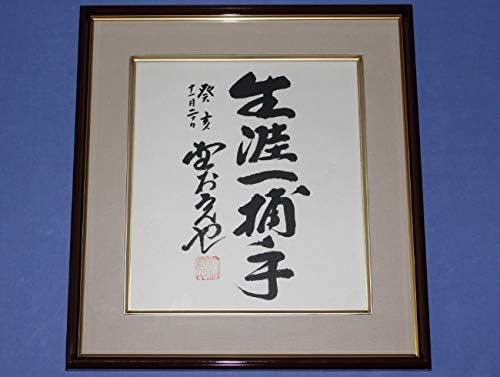 生涯一捕手
癸亥
十一月
野村克也